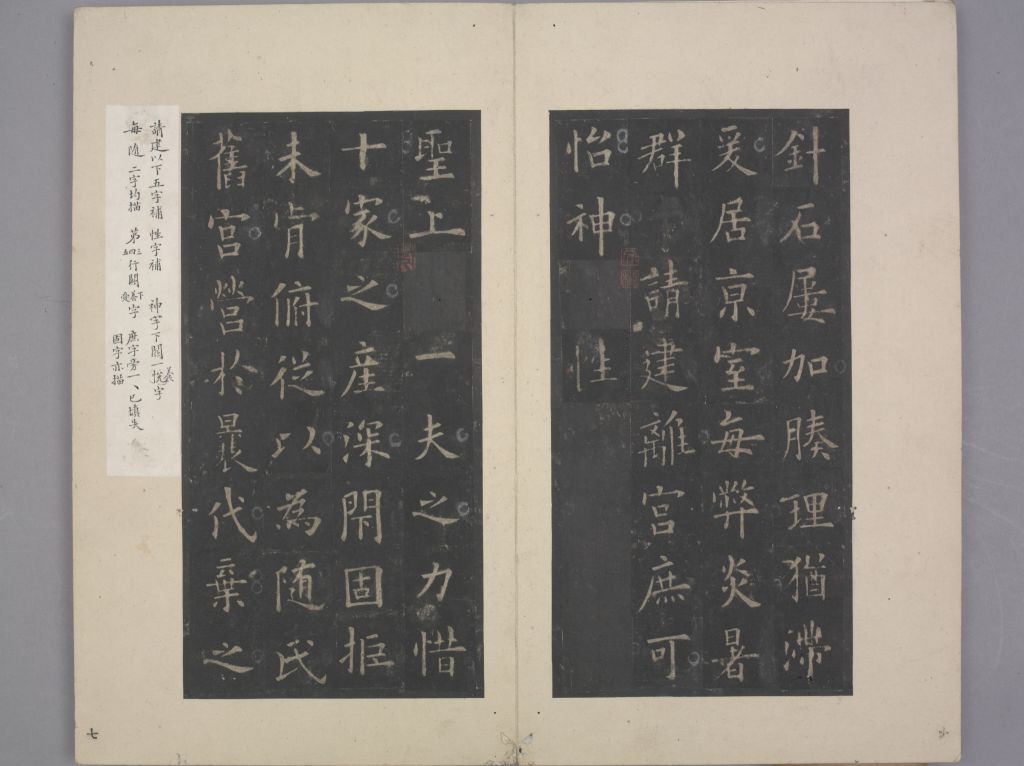 針石屢加腠理猶滯
爰居京室每弊炎暑
群請建離宮庶可
怡神性
聖上一夫之力惜
十家之產深閇固拒
未肯俯從以為随氏
舊宮營於曩代葉之
請建以下五字補 性字補 神字下闕一字
每隨二字均描 第三四行闕字 庶字旁一、已填失
固字亦描
七